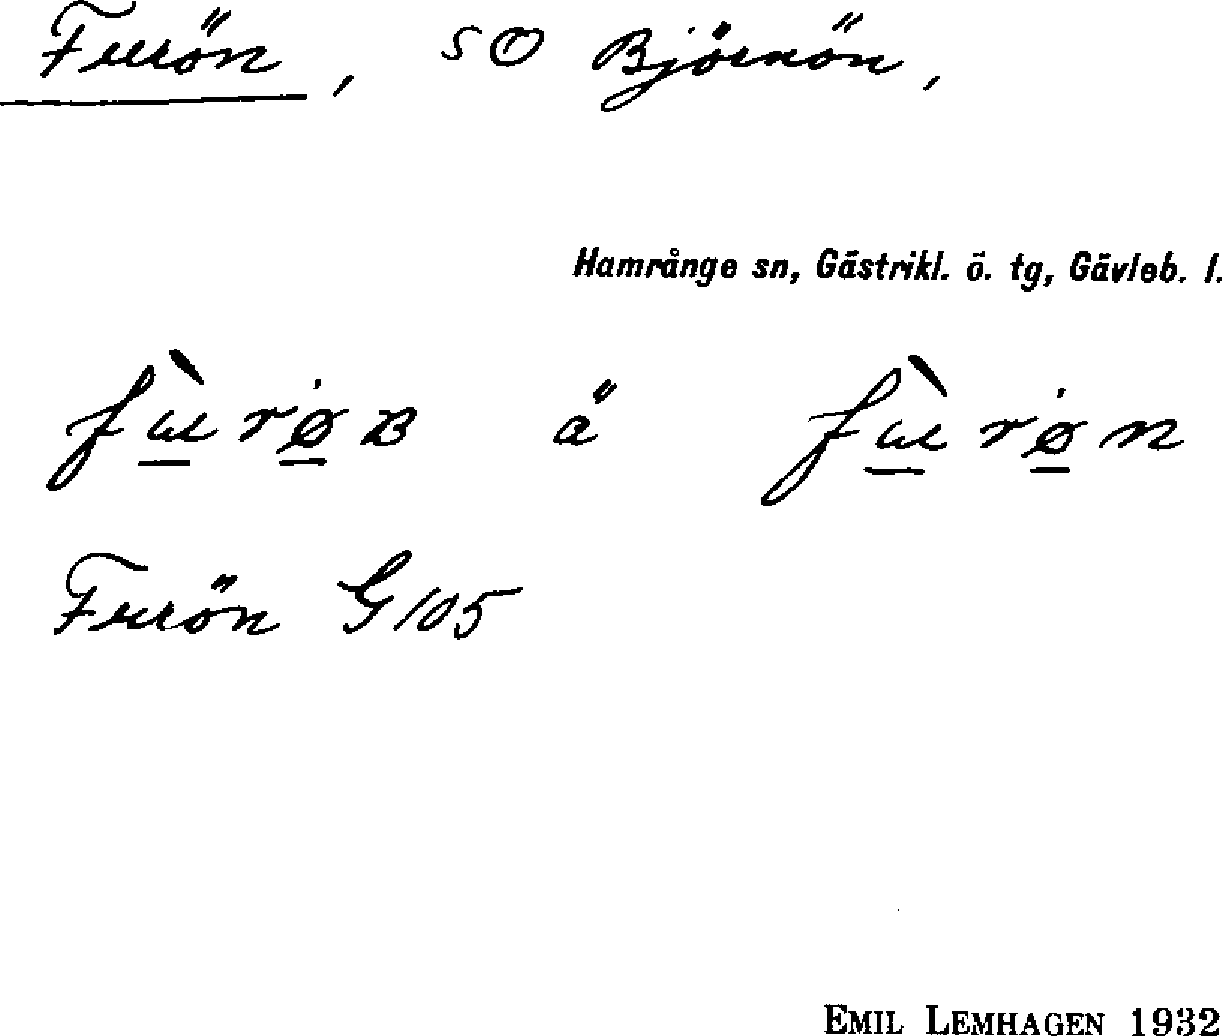 Furön, SO Björnön,
Hamrånge sn, Gästrikl. ö. tg, Gävleb. l.
fu̠̇rø̠ʙ ä fu̠̇rø̠n
Furön G 105
EMIL LEMHAGEN 1932